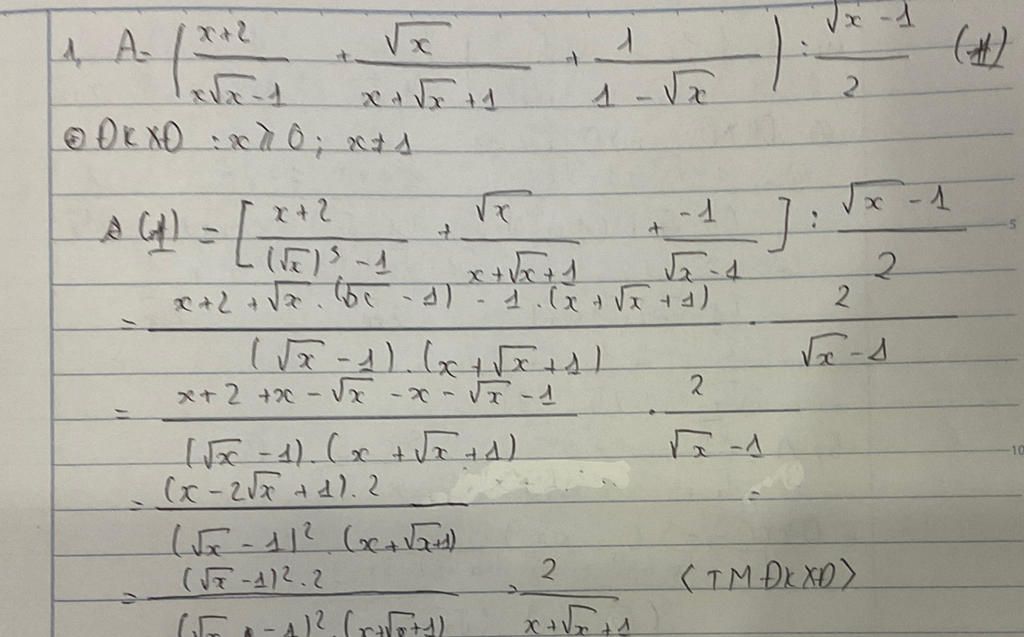 1, A = ( (x+2)/(x√x - 1) + √x/(x + √x + 1) + 1/(1 - √x) ) : (√x - 1)/2 (1)
ĐKXĐ : x ≥ 0 ; x ≠ 1
(1) = [ (x+2)/((√x)³ - 1) + √x/(x + √x + 1) + -1/(√x - 1) ] : (√x - 1)/2
= (x + 2 + √x . (√x - 1) - 1 . (x + √x + 1))/((√x - 1) . (x + √x + 1)) . 2/(√x - 1)
= (x + 2 + x - √x - x - √x - 1)/((√x - 1) . (x + √x + 1)) . 2/(√x - 1)
= ((x - 2√x + 1) . 2)/((√x - 1)² . (x + √x + 1)) =
= ((√x - 1)² . 2)/((√x - 1)² . (x + √x + 1)) = 2/(x + √x + 1) <TMĐKXĐ>
5
10